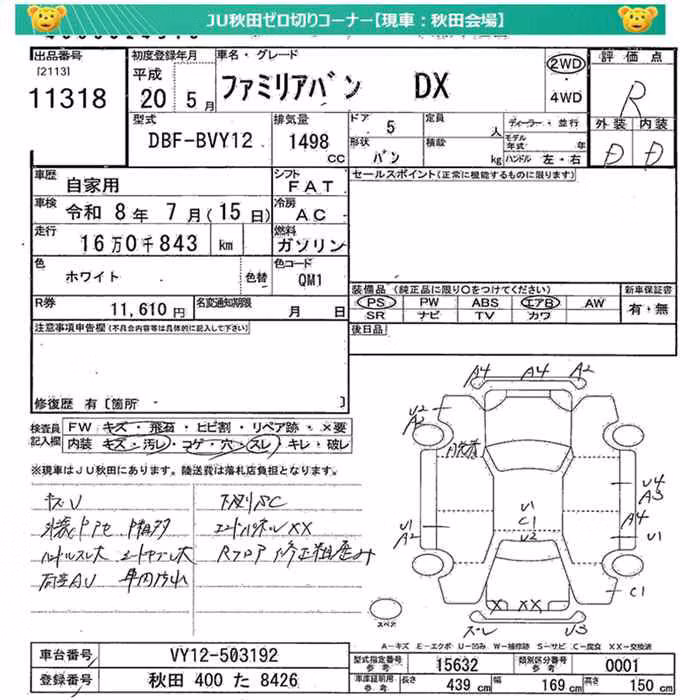 JU秋田ゼロ切りコーナー【現車：秋田会場】
出品番号 [2113] 11318
初度登録年月 平成 20年 5月
車名・グレード ファミリアバン DX
2WD ・ 4WD
評価点 R
外装 内装
D D
型式 DBF-BVY12
排気量 1498 CC
ドア 5
形状 バン
定員 人
積載 kg
ディーラー・並行
モデル年式 年
ハンドル 左・右
車歴 自家用
シフト FAT
セールスポイント(正常に機能するものに限ります)
車検 令和 8年 7月(15日)
冷房 AC
走行 16万0千843 km
燃料 ガソリン
色 ホワイト 色替
色コード QM1
装備品 (純正品に限り○をつけてください)
PS PW ABS エアB AW
SR ナビ TV カワ
新車保証書 有・無
R券 11,610円
名変通知期限 月 日
後日品
注意事項申告欄(不具合内容等は具体的に記入して下さい)
修復歴 有[箇所 ]
検査員記入欄
FW キズ・飛石・ヒビ割・リペア跡・×要
内装 キズ・汚レ・コゲ・穴・スレ・キレ・破レ
※現車はJU秋田にあります。陸送費は落札店負担となります。
キズU 下廻りSC
ハンドルスレ大 Rフロア修正粗歪み
A4 A4 A2
U2
A2
U4
A3
A4
U1
U1
A2
U1
C1
U2
C1
X XX
ズレ U3
スペア
A－キズ E－エクボ U－凹み W－補修跡 S－サビ C－腐食 XX－交換済
車台番号 VY12-503192
登録番号 秋田 400 た 8426
型式指定番号 参考 15632
類別区分番号 参考 0001
車庫証明用 参考 長さ 439 cm 幅 169 cm 高さ 150 cm